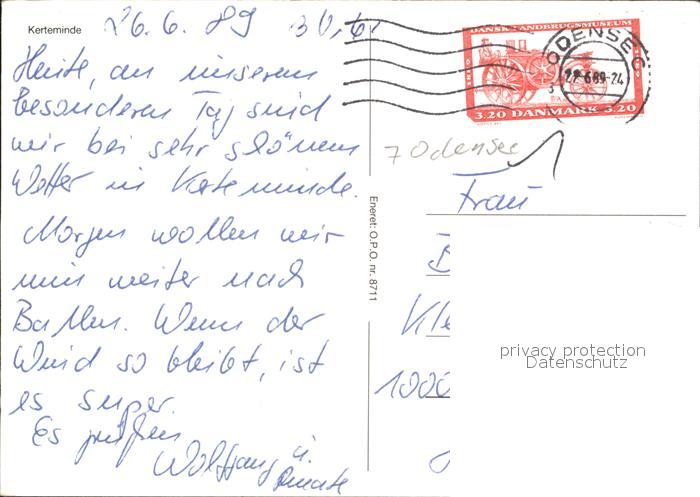 Kerteminde
26.6.89
Heute, an unserem
besonderen Tag sind
wir bei sehr schönem
Wetter in Kerteminde.
Morgen wollen wir
nun weiter nach
Ballen. Wenn der
Wind so bleibt, ist
es super.
Es grüßen
Wolfgang u.
Renate
Eneret: O.P.O. nr. 8711
DANSK LANDBRUGSMUSEUM
3.20 DANMARK 3.20
ODENSE C
27.6.89-24
7 Odense
Frau
1000
privacy protection
Datenschutz